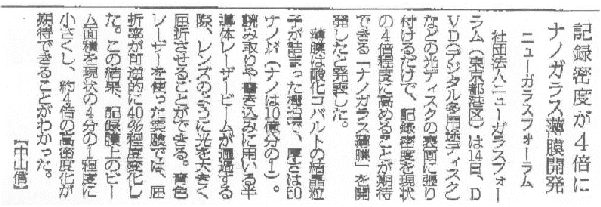 記録密度が4倍に
ナノガラス薄膜開発
ニューガラスフォーラム
社団法人ニューガラスフォー
ラム(東京都港区)は14日、D
VD(デジタル多用途ディスク)
などの光ディスクの表面に張り
付けるだけで、記録密度を現状
の4倍程度に高めることが期待
できる「ナノガラス薄膜」を開
発したと発表した。
薄膜は酸化コバルトの結晶粒
子が詰まった構造で、厚さは50
ナノ㍍(ナノは10億分の1)。
読み取りや書き込みに用いる半
導体レーザービームが通過する
際、レンズのように光を大きく
屈折させることができる。青色
レーザーを使った実験では、屈
折率が可逆的に40%程度変化し
た。この結果、記録膜上のビー
ム面積を現状の4分の1程度に
小さくし、約4倍の高密度化が
期待できることがわかった。
【中山信】